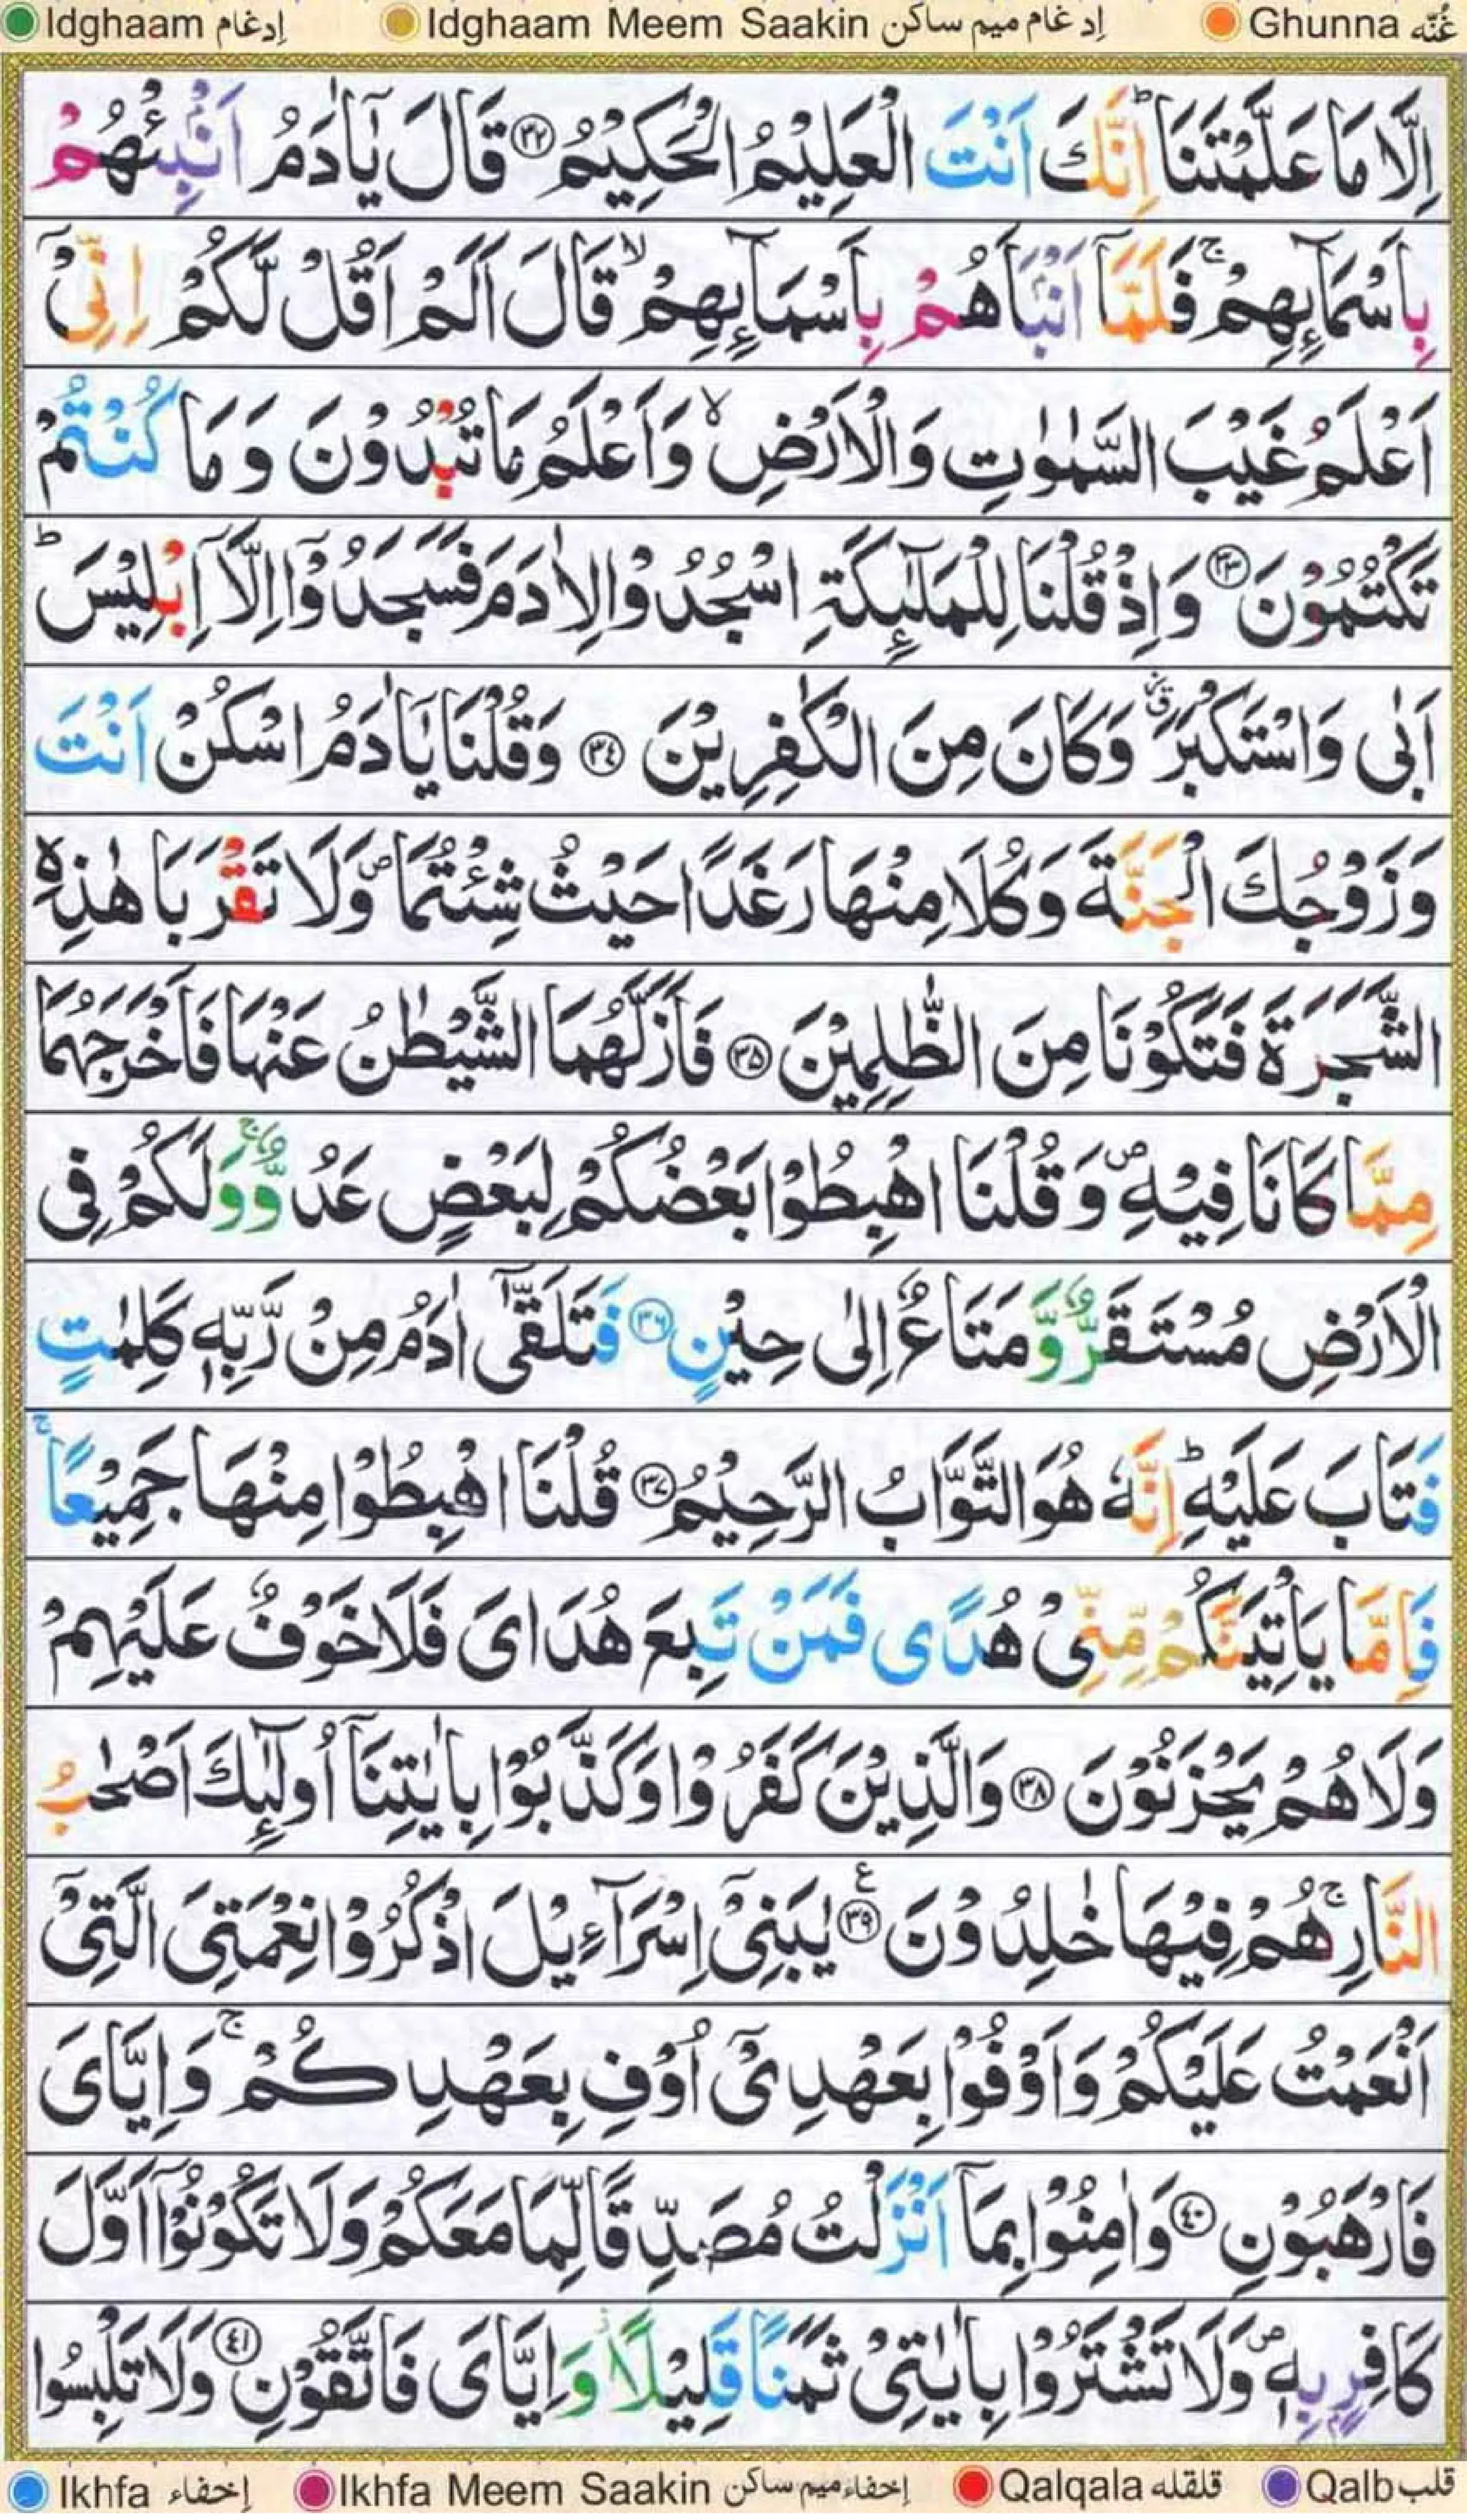 Idghaam إدغام Idghaam Meem Saakin إدغام ميم ساكن Ghunna غُنّه
اِلَّا مَا عَلَّمْتَنَا ؕ اِنَّكَ اَنْتَ الْعَلِيْمُ الْحَكِيْمُ ﴿۳۲﴾ قَالَ يٰۤاٰدَمُ اَنْۢبِئْهُمْ
بِاَسْمَآئِهِمْ ۚ فَلَمَّاۤ اَنْۢبَاَهُمْ بِاَسْمَآئِهِمْ ۙ قَالَ اَلَمْ اَقُلْ لَّكُمْ اِنِّیْۤ
اَعْلَمُ غَيْبَ السَّمٰوٰتِ وَالْاَرْضِ ۙ وَاَعْلَمُ مَا تُبْدُوْنَ وَمَا كُنْتُمْ
تَكْتُمُوْنَ ﴿۳۳﴾ وَاِذْ قُلْنَا لِلْمَلٰٓئِكَةِ اسْجُدُوْا لِاٰدَمَ فَسَجَدُوْۤا اِلَّاۤ اِبْلِيْسَ ؕ
اَبٰى وَاسْتَكْبَرَ ۗ وَكَانَ مِنَ الْكٰفِرِيْنَ ﴿۳٤﴾ وَقُلْنَا يٰۤاٰدَمُ اسْكُنْ اَنْتَ
وَزَوْجُكَ الْجَنَّةَ وَكُلَا مِنْهَا رَغَدًا حَيْثُ شِئْتُمَا ۪ وَلَا تَقْرَبَا هٰذِهِ
الشَّجَرَةَ فَتَكُوْنَا مِنَ الظّٰلِمِيْنَ ﴿۳۵﴾ فَاَزَلَّهُمَا الشَّيْطٰنُ عَنْهَا فَاَخْرَجَهُمَا
مِمَّا كَانَا فِيْهِ ۪ وَقُلْنَا اهْبِطُوْا بَعْضُكُمْ لِبَعْضٍ عَدُوٌّ ۚ وَلَكُمْ فِی
الْاَرْضِ مُسْتَقَرٌّ وَّمَتَاعٌ اِلٰى حِيْنٍ ﴿۳۶﴾ فَتَلَقّٰۤى اٰدَمُ مِنْ رَّبِّهٖ كَلِمٰتٍ
فَتَابَ عَلَيْهِ ؕ اِنَّهٗ هُوَ التَّوَّابُ الرَّحِيْمُ ﴿۳۷﴾ قُلْنَا اهْبِطُوْا مِنْهَا جَمِيْعًا ۚ
فَاِمَّا يَاْتِيَنَّكُمْ مِّنِّیْ هُدًى فَمَنْ تَبِعَ هُدَایَ فَلَا خَوْفٌ عَلَيْهِمْ
وَلَا هُمْ يَحْزَنُوْنَ ﴿۳۸﴾ وَالَّذِيْنَ كَفَرُوْا وَكَذَّبُوْا بِاٰيٰتِنَاۤ اُولٰٓئِكَ اَصْحٰبُ
النَّارِ ۚ هُمْ فِيْهَا خٰلِدُوْنَ ﴿۳۹﴾ ع يٰبَنِیْۤ اِسْرَآءِيْلَ اذْكُرُوْا نِعْمَتِیَ الَّتِیْۤ
اَنْعَمْتُ عَلَيْكُمْ وَاَوْفُوْا بِعَهْدِیْۤ اُوْفِ بِعَهْدِكُمْ ۚ وَاِيَّایَ
فَارْهَبُوْنِ ﴿٤۰﴾ وَاٰمِنُوْا بِمَاۤ اَنْزَلْتُ مُصَدِّقًا لِّمَا مَعَكُمْ وَلَا تَكُوْنُوْۤا اَوَّلَ
كَافِرٍۭ بِهٖ ۪ وَلَا تَشْتَرُوْا بِاٰيٰتِیْ ثَمَنًا قَلِيْلًا ۫ وَاِيَّایَ فَاتَّقُوْنِ ﴿٤۱﴾ وَلَا تَلْبِسُوا
Ikhfa إخفاء Ikhfa Meem Saakin إخفاء ميم ساكن Qalqala قلقله Qalb قلب